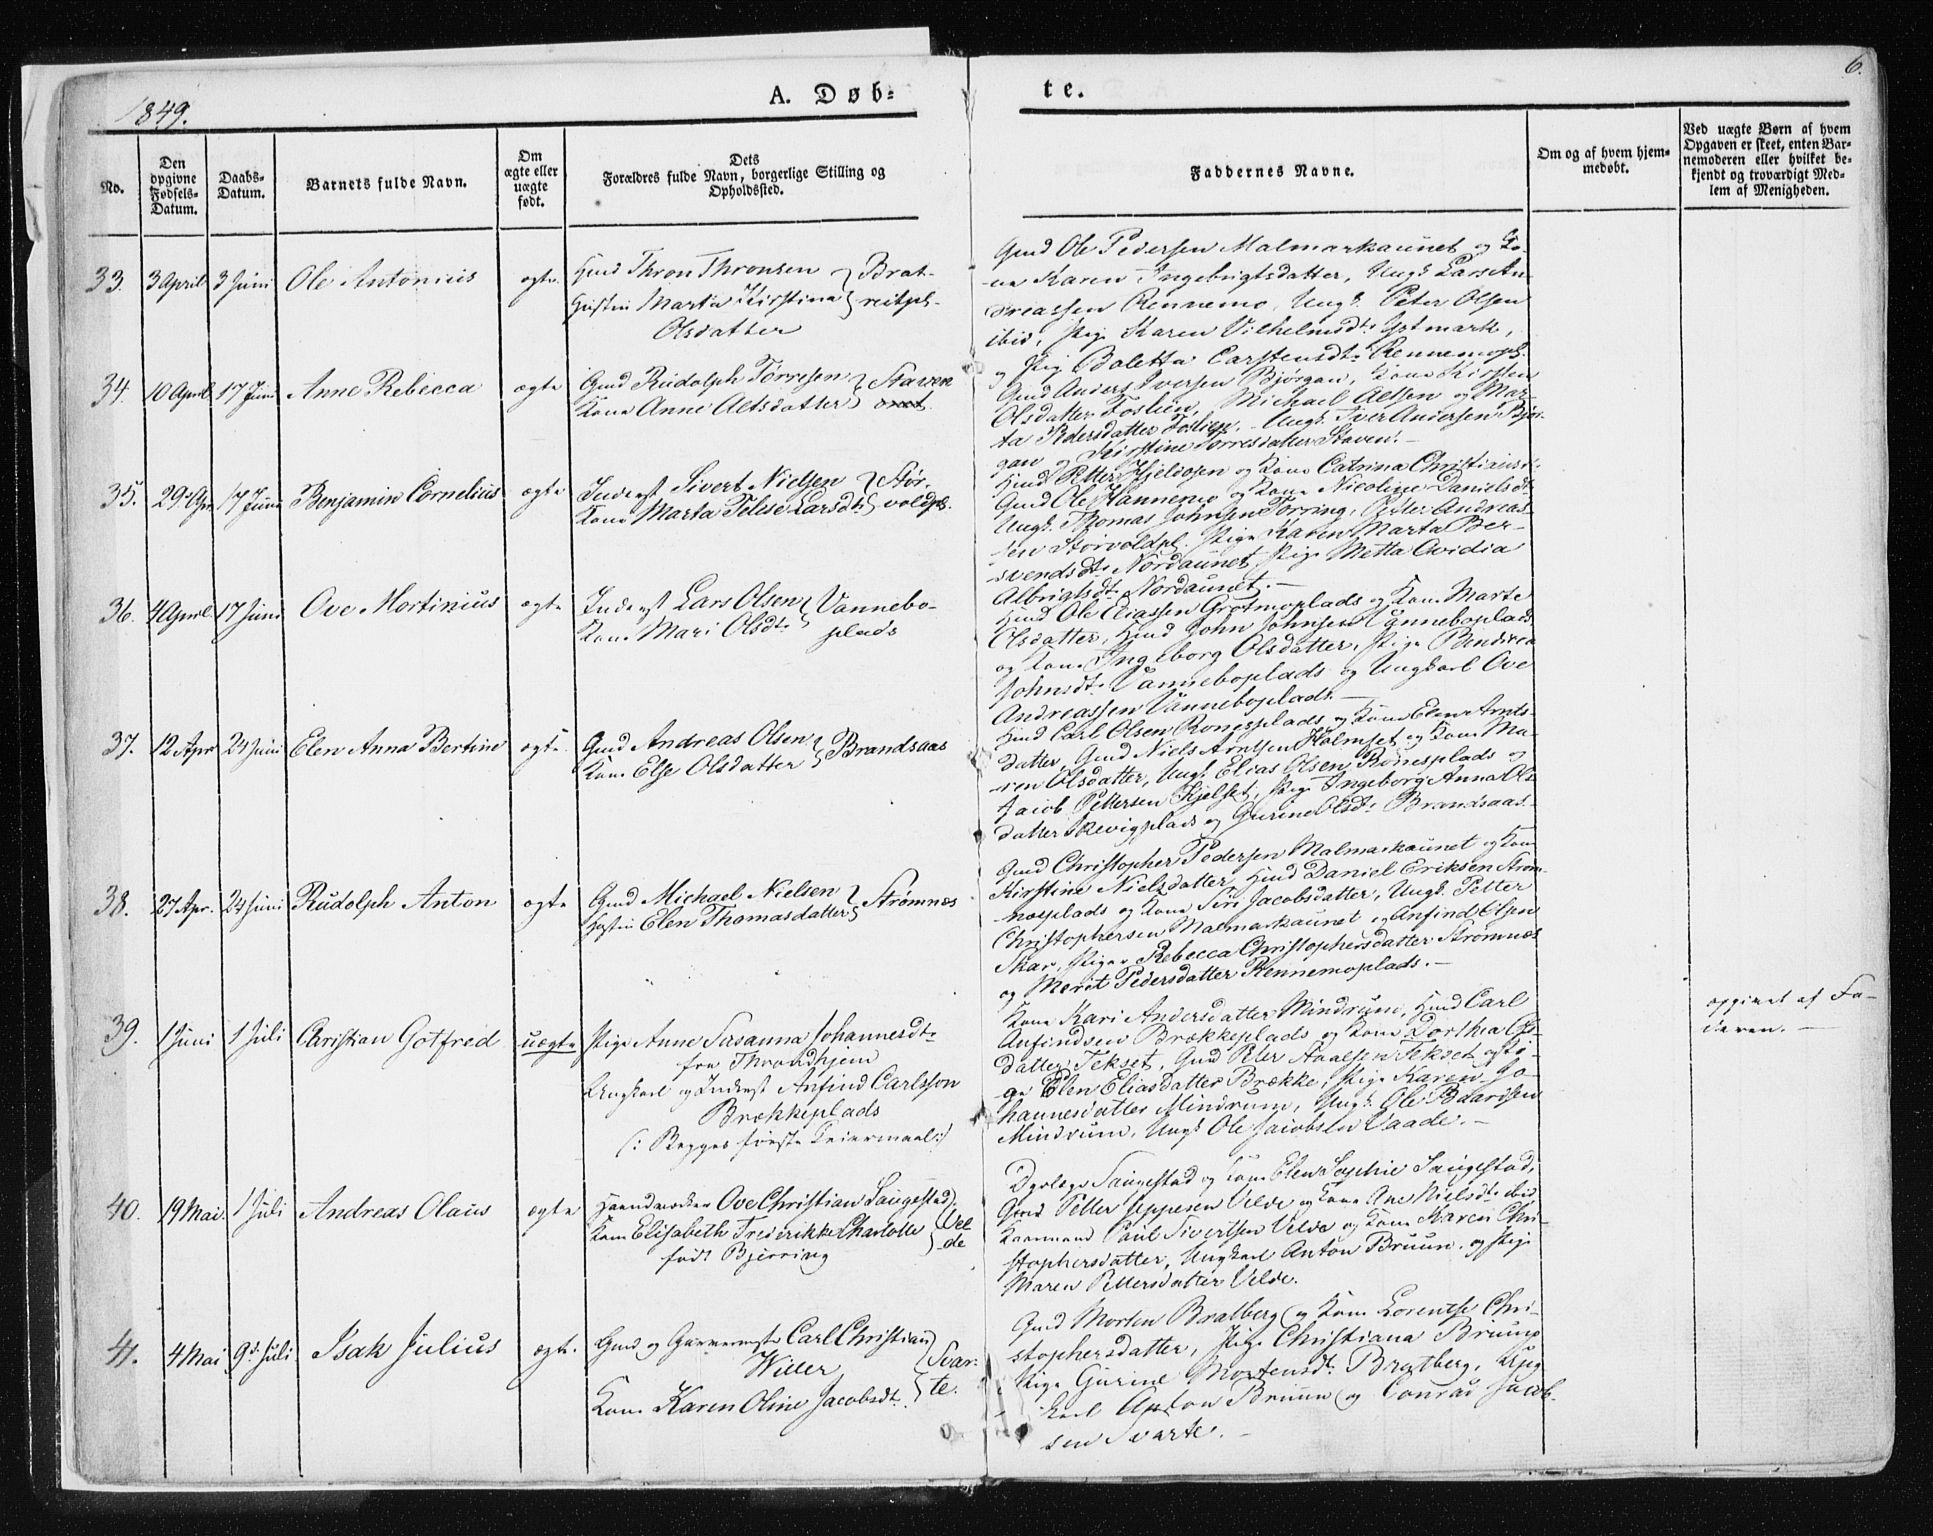 1849.
A. Døb-
te.
6.
No.
Den opgivne Fødsels-Datum.
Daabs-Datum.
Barnets fulde Navn.
Om ægte eller uægte født.
Dets Forældres fulde Navn, borgerlige Stilling og Opholdssted.
Faddernes Navne.
Om og af hvem hjem-medøbt.
Ved uægte Børn af hvem Opgaven er skeet, enten Bar-nemoderen eller hvilket be-kjendt og troværdigt Med-lem af Menigheden.
33. 3 April 3 Juni Ole Antonius ægte
Huusm Thron Thronsen } Brat-
Hustru Marta Kirstina } reitpl.
Olsdatter
Gmd Ole Pedersen Malmarkaunet og Ko-
na Karen Ingebrigtsdatter, Ungk Lars An-
dreassen Rennemo, Ungk. Peter Olsen
ibid, Pig Karen Vilhelmsdt. Ystmark,
og Pig Boletta Carstensdt. Rennemopl.
34. 10 April 17 Juni Anne Rebecca ægte
Gmd Rudolph Törresen } Staven
Kone Anne Altsdatter
Gmd Anders Iversen Bjørgan, Kone Kirsten
Olsdatter Foslien, Michael Altsen og Mar-
ta Pedersdatter Foslien, Ungk. Iver Andersen Bjør-
gan og Kirstine Torresdatter Staven. -
35. 29 Apr 17 Juni Benjamin Cornelius ægte
Inderst Sivert Nielsen } Stor-
Kone Marta Larsdt. } voldpl.
Hmd Petter Hjeldosen og Kone Catrina Christiansdt.
Gmd Ole Hannemo og Kone Nicoline Danielsdt.
Ungk. Thomas Johnsen Torring, Peter Andreas-
sen Storvoldpl. Pige Karen Marta Ber-
svendsdt. Nordaunet, Pige Metta Ovidia
Albrigtsdt. Nordaunet. -
36. 4 April 17 Juni Ove Mortinius ægte
Inderst Lars Olsen } Vannebo-
Kone Mari Olsdt. } plads
Hmd Ole Eliassen Grotmoplads og Kone Marte
Olsdatter, Hmd John Johnsen Vanneboplads
og Kone Ingeborg Olsdatter, Pige Bendrea
Johnsdt. Vanneboplads og Ungkarl Ove
Andreassen Vanneboplads. -
37. 12 Apr 24 Juni Elen Anna Bertine ægte
Gmd Andreas Olsen } Brandsaas
Kone Else Olsdatter
Hmd Carl Olsen Ronesplads og Kone Elen Arnts-
datter, Gmd Niels Arntsen Holmset og Kone Ma-
ren Olsdatter, Ungk. Elias Olsen Ronesplads og
Jacob Pettersen Kjelset, Pige Ingeborg Anna Ols-
datter Skevigplads og Gurine Olsdt. Brandsaas.
38. 27 Apr. 24 Juni Rudolph Anton ægte
Gmd Michael Nielsen } Strømnes
Hustru Elen Thomasdatter
Gmd Christopher Pedersen Malmarkaunet og Kone
Kirstine Nielsdatter, Hmd Daniel Eriksen Strøm-
nesplads og Kone Siri Jacobsdatter, Ungk. Petter
Christophersen Malmarkaunet og Anfind Olsen
Skar, Piger Rebecca Christophersdatter Strømnes
og Meret Pedersdatter Rennemoplads. -
39. 1 Juni 1 Juli Christian Gotfred uægte
Pige Anne Susanna Johannesdt.
fra Throndhjem
Ungkarl og Inderst Anfind Carlsson
Brækkeplads
(: Begges første Leiermaal :)
Kone Kari Andersdatter Mindrum, Hmd Carl
Anfindsen Brækkeplads og Kone Dorthea Ols-
datter Tekset, Gmd Peter Paalsen Tekset og Pi-
ge Elen Eliasdatter Brække, Pige Karen Jo-
hannesdatter Mindrum, Ungk. Ole Baardsen
Mindrum, Ungk Ole Jacobsen Vaade. -
opgivet af Fa-
deren. -
40. 19 Mai 1 Juli Andreas Olaus ægte
Haandverker Ove Christian Saugestad } Vel-
Kone Elisabeth Frederikke Charlotte } de
født Bjerring
Saugestad og Kone Elen Sophie Saugestad,
Gmd Petter Jeppesen Velde og Kone Ane Nielsdt. ibid,
Kaarmand Paul Sivertsen Velde og Kone Karen Chri-
stophersdatter, Ungkarl Anton Bruun og Pige
Maren Pettersdatter Velde.
41. 4 Mai 9d. Juli Isak Julius ægte.
Gmd og Garvermester Carl Christian } Svar-
Willer } te.
Kone Karen Oline Jacobsdt.
Gmd Morten Bratberg og Kone Lorentse Chri-
stophersdatter, Pige Christiana Bruun,
Pige Gurine Mortensdt. Bratberg, Ung-
karl Anton Bruun og Conrad Jacob-
sen Svarte. -